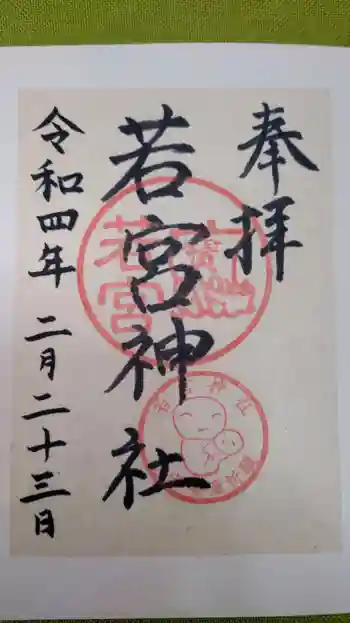 奉拝
若宮神社
令和四年 二月二十三日
若宮